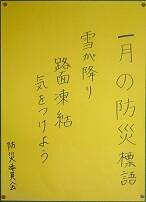 一月の防災標語
雪が降り
路面凍結
気をつけよう
防災委員会